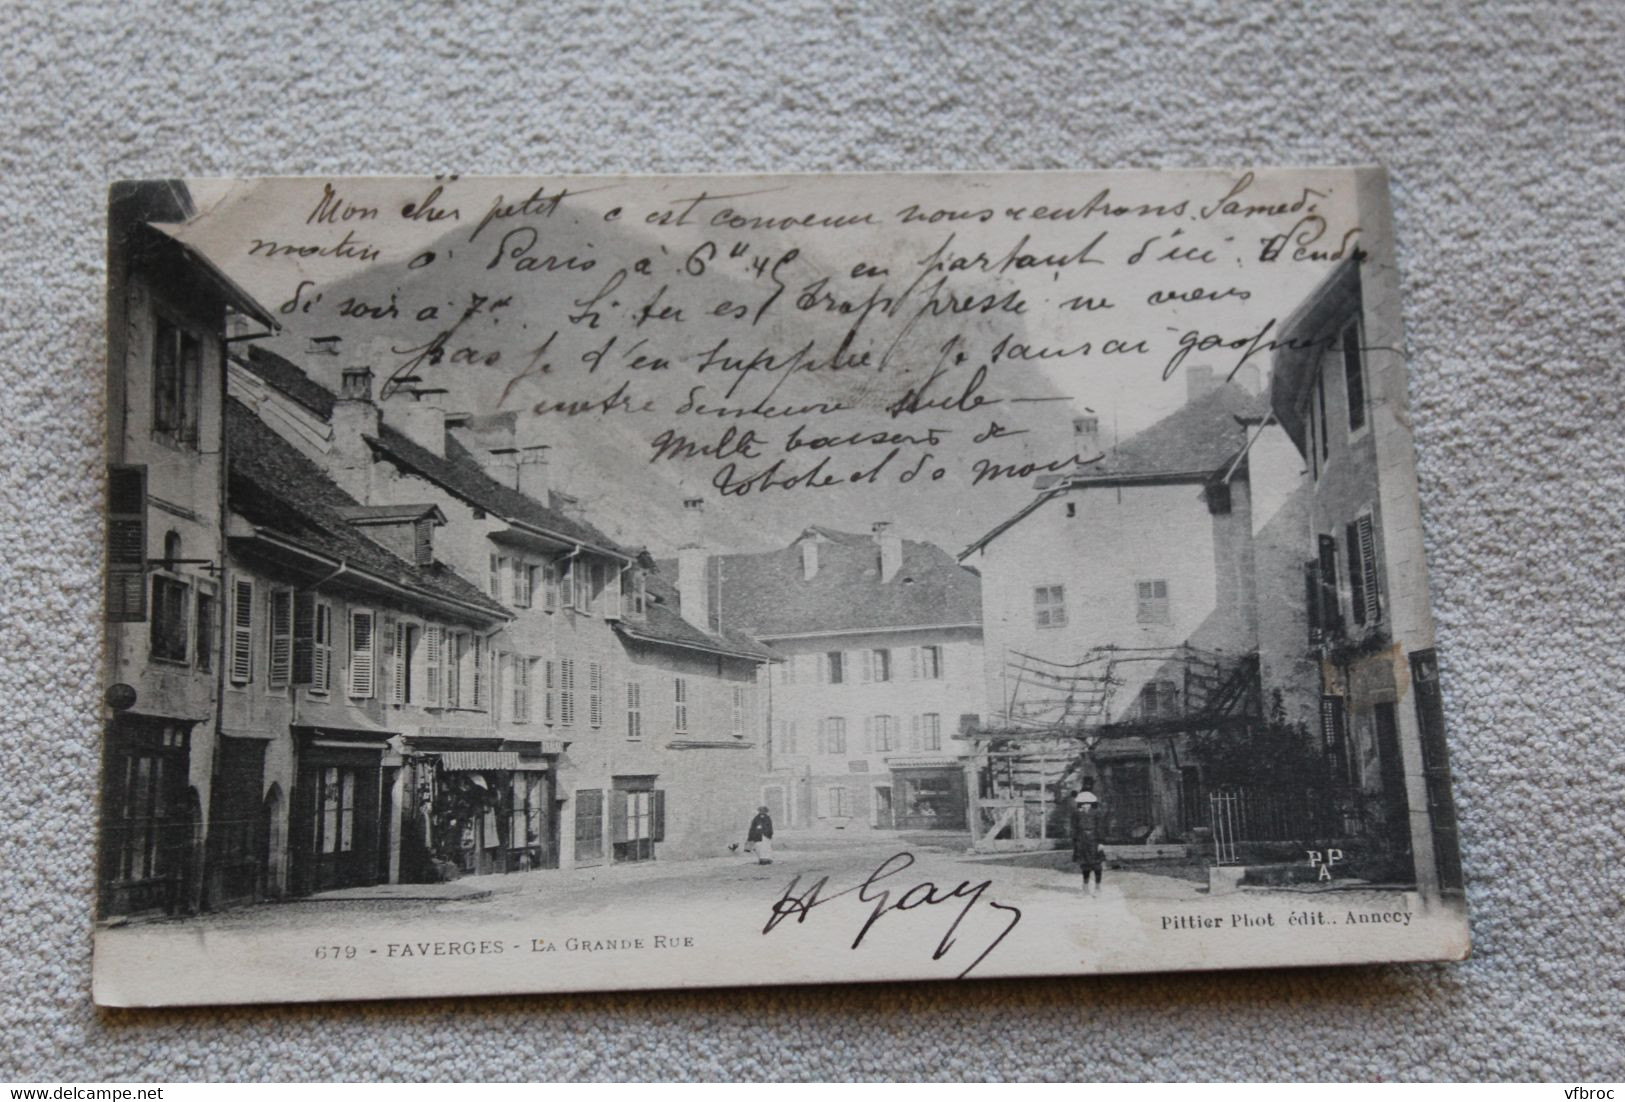 Mon cher petit. c est convenu nous rentrons Samedi
matin à Paris à 6h 45 en partant d'ici Vendre
di soir à 7h. Si tu es trop pressé ne viens
pas je t'en supplie. Je saurai gagner
notre demeure seule —
Mille baisers de
et de moi
H Gay
PPA
Pittier Phot édit., Annecy
679 - FAVERGES - LA GRANDE RUE
vfbroc